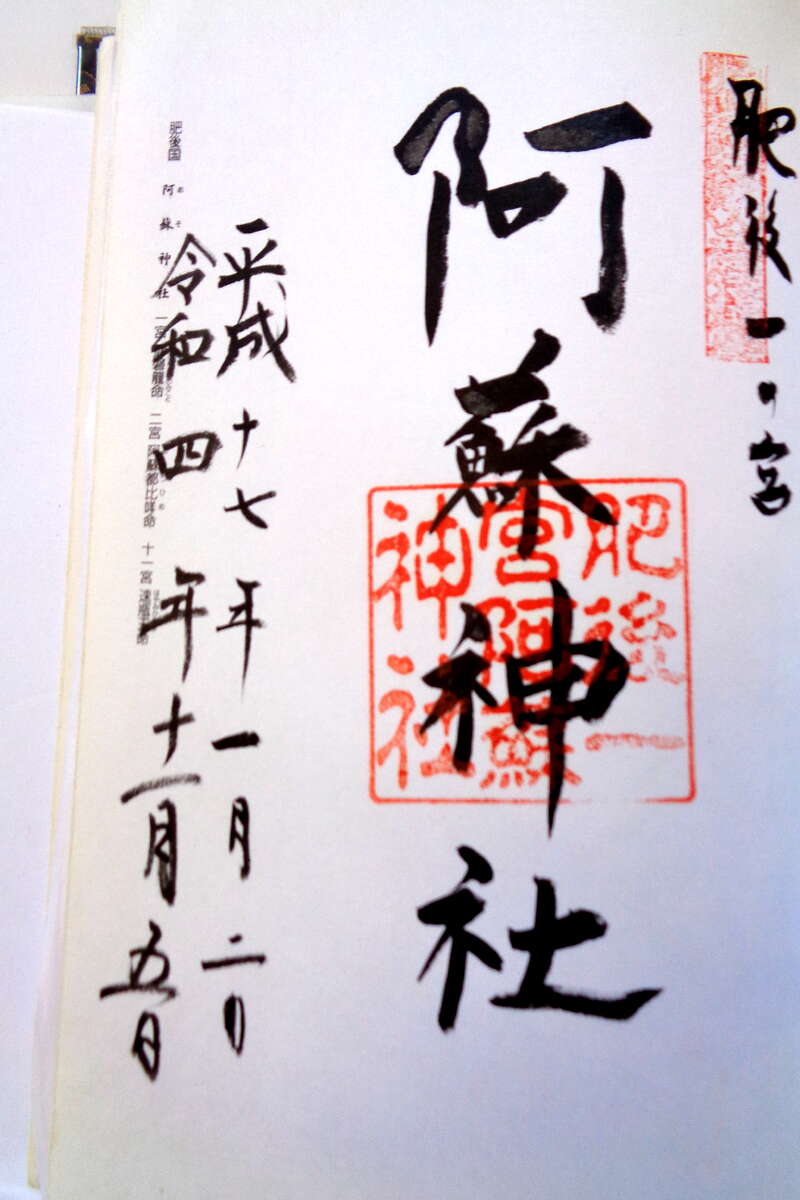 肥後一の宮
阿蘇神社
肥後一
宮阿蘇
神社
平成十七年一月二日
令和四年十一月五日
肥後国 阿蘇神社 一宮 龍命 二宮 阿蘇都比咩命 十一宮 速瓶玉命
あそ